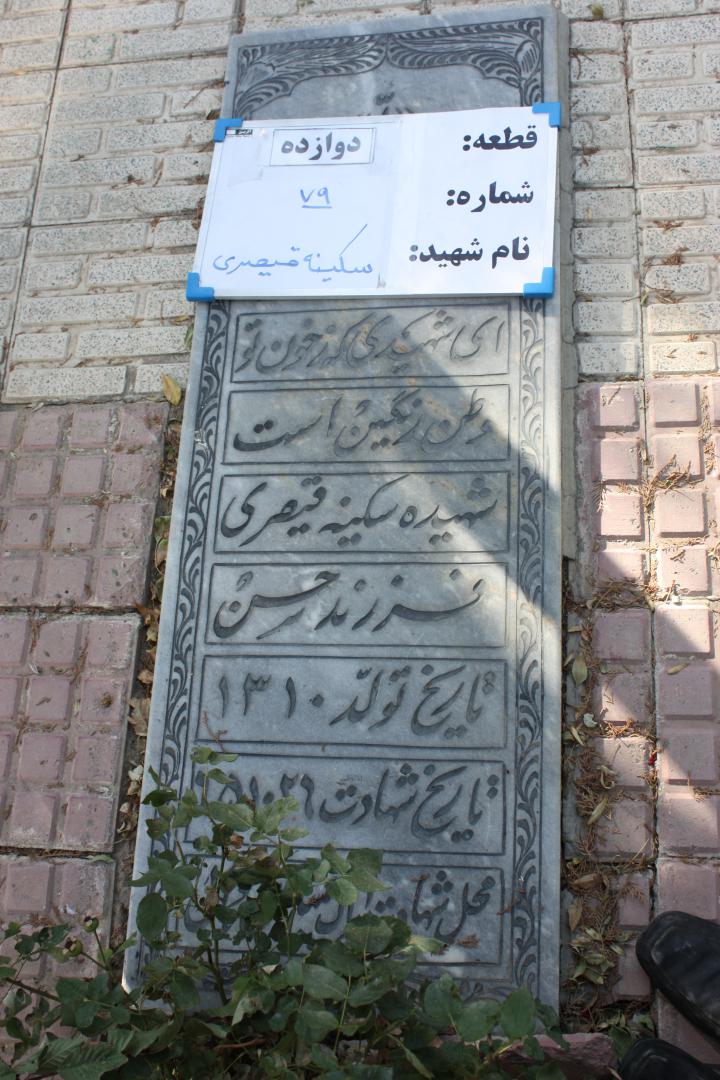 قطعه: دوازده
شماره: ۷۹
نام شهید: سکینه قیصری
ای شهیدی که ز خون تو
وطن رنگین است
شهیده سکینه قیصری
فرزند حسن
تاریخ تولد ۱۳۱۰
تاریخ شهادت
محل شهادت